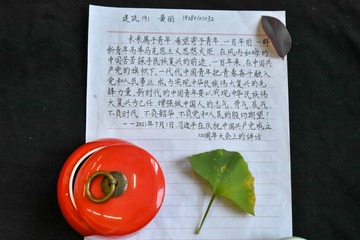 建筑191 黄丽 1928101032
未来属于青年，希望寄予青年。一百年前，一群
新青年高举马克思主义思想火炬，在风雨如晦的
中国苦苦探寻民族复兴的前途。一百年来，在中国共
产党的旗帜下，一代代中国青年把青春奋斗融入
党和人民事业，成为实现中华民族伟大复兴的先
锋力量。新时代的中国青年要以实现中华民族伟
大复兴为己任，增强做中国人的志气、骨气、底气，
不负时代，不负韶华，不负党和人民的殷切期望！
——2021年7月1日，习近平在庆祝中国共产党成立
100周年大会上的讲话